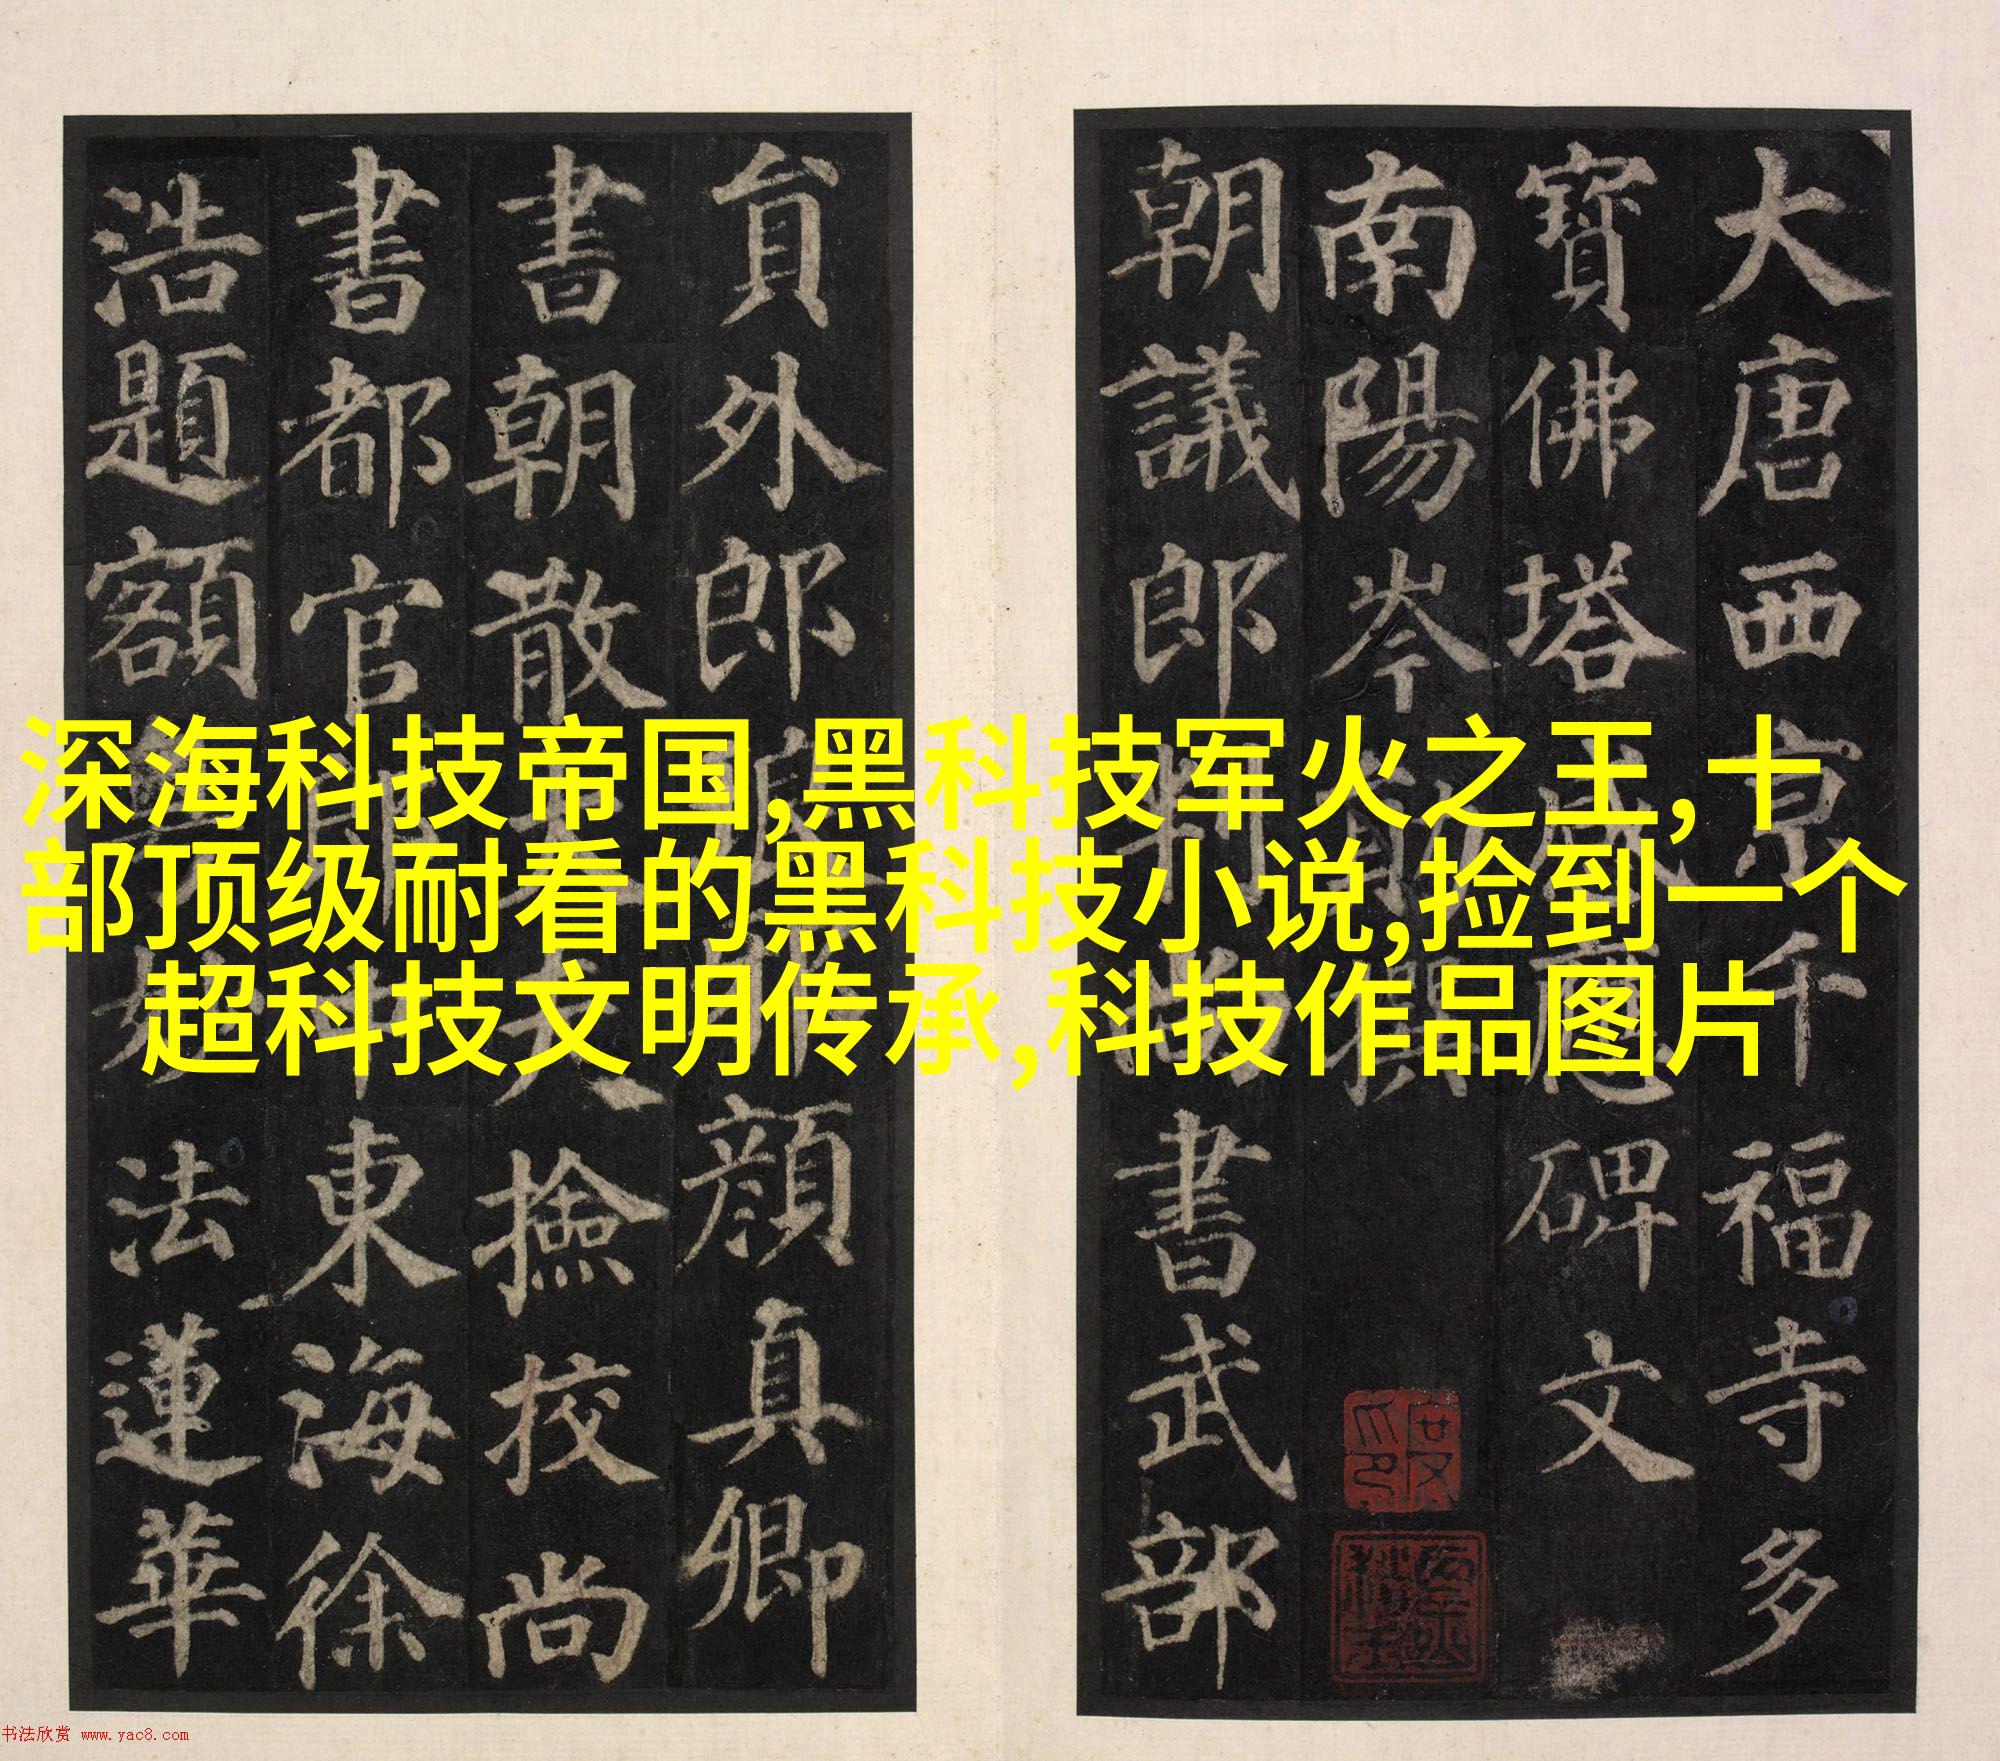 大唐西京千福寺多
寶佛塔感應碑文
南陽岑勛撰
朝議郎判尚書武部
貟外郎
顏真卿
書朝散大夫撿校尚
書都官郎中東海徐
浩題額
法蓮華
深海科技帝国,黑科技军火之王,十
部顶级耐看的黑科技小说,捡到一个
超科技文明传承,科技作品图片
书法欣赏 www.yac8.com